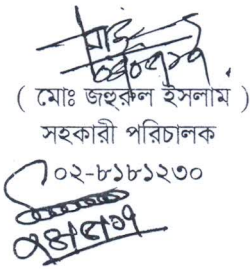 ( মোঃ জহুরুল ইসলাম )
সহকারী পরিচালক
০২-৮১৮১২৩০